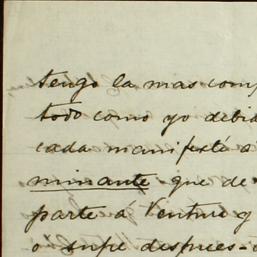 tengo la mas com
todo como yo debia
cada manifesté a
minante que de
parte á Ventura y
o supe despues